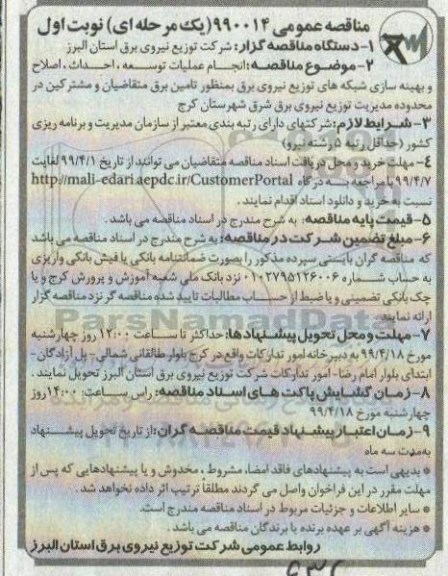 مناقصه عمومی ۹۹۰۰۱۴ (یک مرحله ای) نوبت اول
۱-دستگاه مناقصه گزار: شرکت توزیع نیروی برق استان البرز
۲-موضوع مناقصه: انجام عملیات توسعه ، احداث ، اصلاح
و بهینه سازی شبکه های توزیع نیروی برق بمنظور تامین برق متقاضیان و مشترکین در
محدوده مدیریت توزیع نیروی برق شرق شهرستان کرج
۳-شرایط لازم: شرکتهای دارای رتبه بندی معتبر از سازمان مدیریت و برنامه ریزی
کشور (حداقل رتبه ۵ رشته نیرو)
۴- مهلت خرید و محل دریافت اسناد مناقصه متقاضیان می توانند از تاریخ ۹۹/۴/۱ لغایت
۹۹/۴/۷ با مراجعه به درگاه http://mali-edari.aepdc.ir/CustomerPortal
نسبت به خرید و دانلود اسناد اقدام نمایند.
۵- قیمت پایه مناقصه: به شرح مندرج در اسناد مناقصه می باشد.
۶-مبلغ تضمین شرکت در مناقصه: به شرح مندرج در اسناد مناقصه می باشد
که مناقصه گران بایستی سپرده مذکور را بصورت ضمانتنامه بانکی یا فیش بانکی واریزی
به حساب شماره ۰۱۰۲۷۹۵۱۲۶۰۰۶ نزد بانک ملی شعبه آموزش و پرورش کرج و یا
چک بانکی تضمینی و یا ضبط از حساب مطالبات تایید شده مناقصه گر نزد مناقصه گزار
ارائه نمایند
۷-مهلت و محل تحویل پیشنهادها: حداکثر تا ساعت ۱۲:۰۰ روز چهارشنبه
مورخ ۹۹/۴/۱۸ به دبیرخانه امور تدارکات واقع در کرج بلوار طالقانی شمالی- پل آزادگان-
ابتدای بلوار امام رضا- امور تدارکات شرکت توزیع نیروی برق استان البرز تحویل نمایند.
۸-زمان گشایش پاکت های اسناد مناقصه: راس ساعت ۱۴:۰۰ روز
چهارشنبه مورخ ۹۹/۴/۱۸
۹-زمان اعتبار پیشنهاد قیمت مناقصه گران: از تاریخ تحویل پیشنهاد
به مدت سه ماه
* بدیهی است به پیشنهادهای فاقد امضا، مشروط ، مخدوش و یا پیشنهادهایی که پس از
مهلت مقرر در این فراخوان واصل می گردند مطلقا ترتیب اثر داده نخواهد شد.
* سایر اطلاعات و جزئیات مربوط در اسناد مناقصه مندرج است.
* هزینه آگهی بر عهده برنده یا برندگان مناقصه می باشد.
روابط عمومی شرکت توزیع نیروی برق استان البرز
ParsNamadData